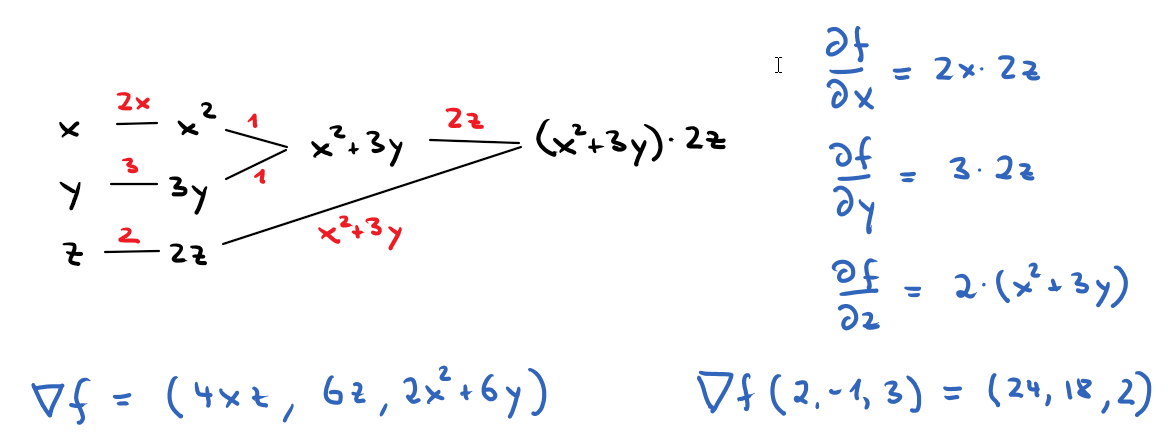 x 2x x² 1 x²+3y 2z (x²+3y)·2z
y 3 3y 1
z 2 2z x²+3y
∂f/∂x = 2x·2z
∂f/∂y = 3·2z
∂f/∂z = 2·(x²+3y)
∇f = (4xz, 6z, 2x²+6y)
∇f(2,-1,3) = (24,18,2)